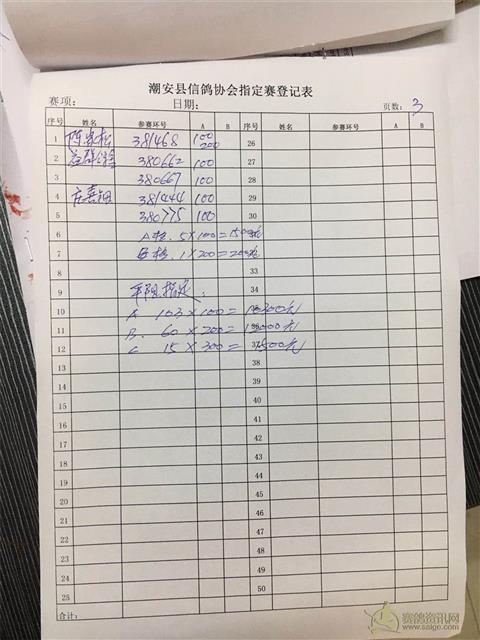 潮安县信鸽协会指定赛登记表
赛项: 日期: 页数: 3
序号 姓名 参赛环号 A B 序号 姓名 参赛环号 A B
1 381468 100 200 26
2 380662 100 27
3 380667 100 28
4 381444 100 29
5 380775 100 30
6 A 5×100=1500元
7 1×200=200元
8 33
9 平阳指定: 34
10 A 103×100=10300元
11 B. 60×200=12000元 36
12 C 15×300=4500元 37
13 38
14 39
15 40
16 41
17 42
18 43
19 44
20 45
21 46
22 47
23 48
24 49
25 50
合计:
赛鸽资讯网
www.saige.com